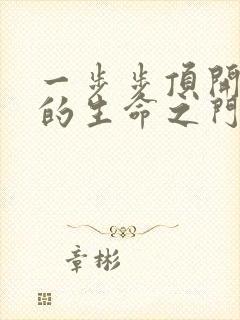 一步步頂開
的生命之門
章彬